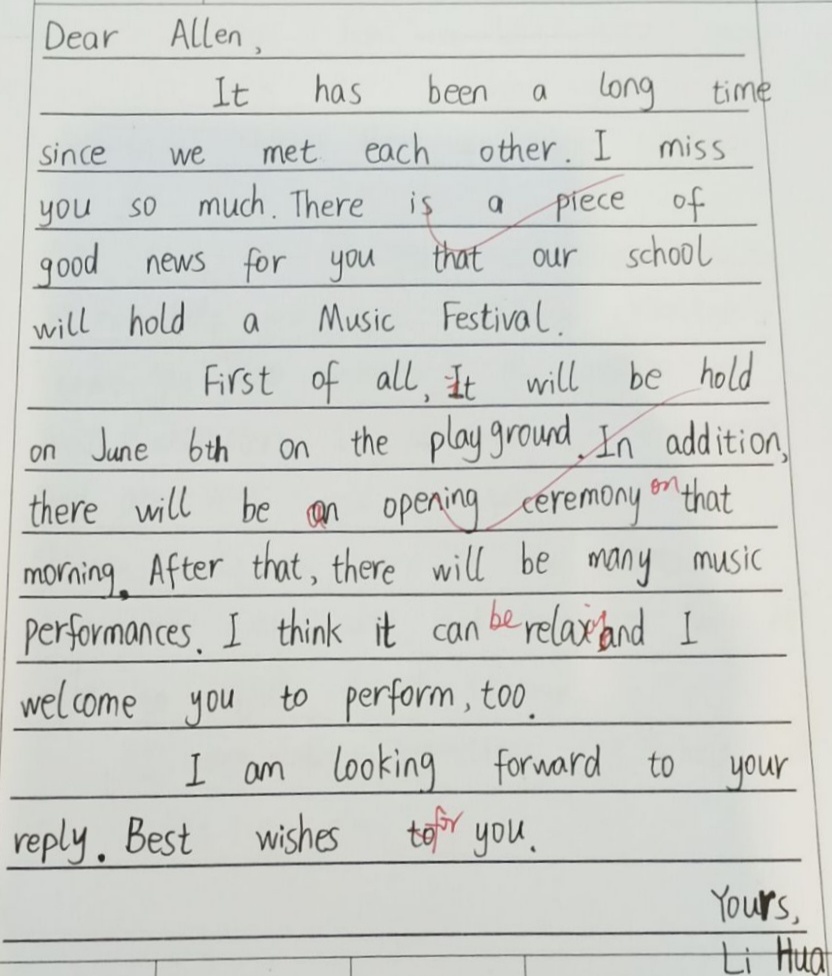 Dear Allen,
It has been a long time
since we met each other. I miss
you so much. There is a piece of
good news for you that our school
will hold a Music Festival.
First of all, It will be hold
on June 6th on the playground. In addition,
there will be an opening ceremony on that
morning. After that, there will be many music
performances. I think it can be relaxing and I
welcome you to perform, too.
I am looking forward to your
reply. Best wishes to for you.
Yours,
Li Hua